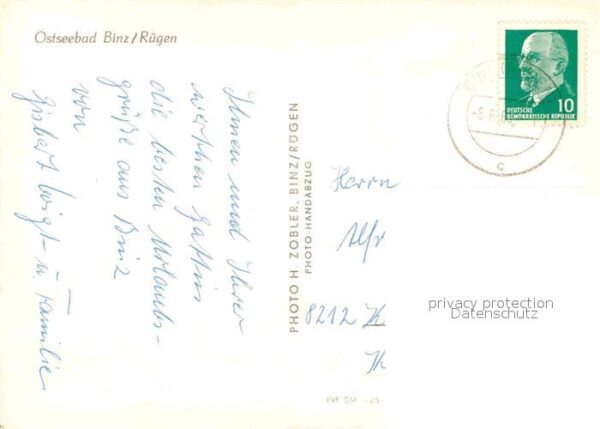 Ostseebad Binz/Rügen
Ihnen und Ihrer
werthen Gattin
die besten Urlaubs-
grüße aus Binz
von
u Familie
PHOTO H. ZOBLER, BINZ/RÜGEN
PHOTO-HANDABZUG
DEUTSCHE
DEMOKRATISCHE REPUBLIK
10
c
Herrn
Alfr
8212
privacy protection
Datenschutz